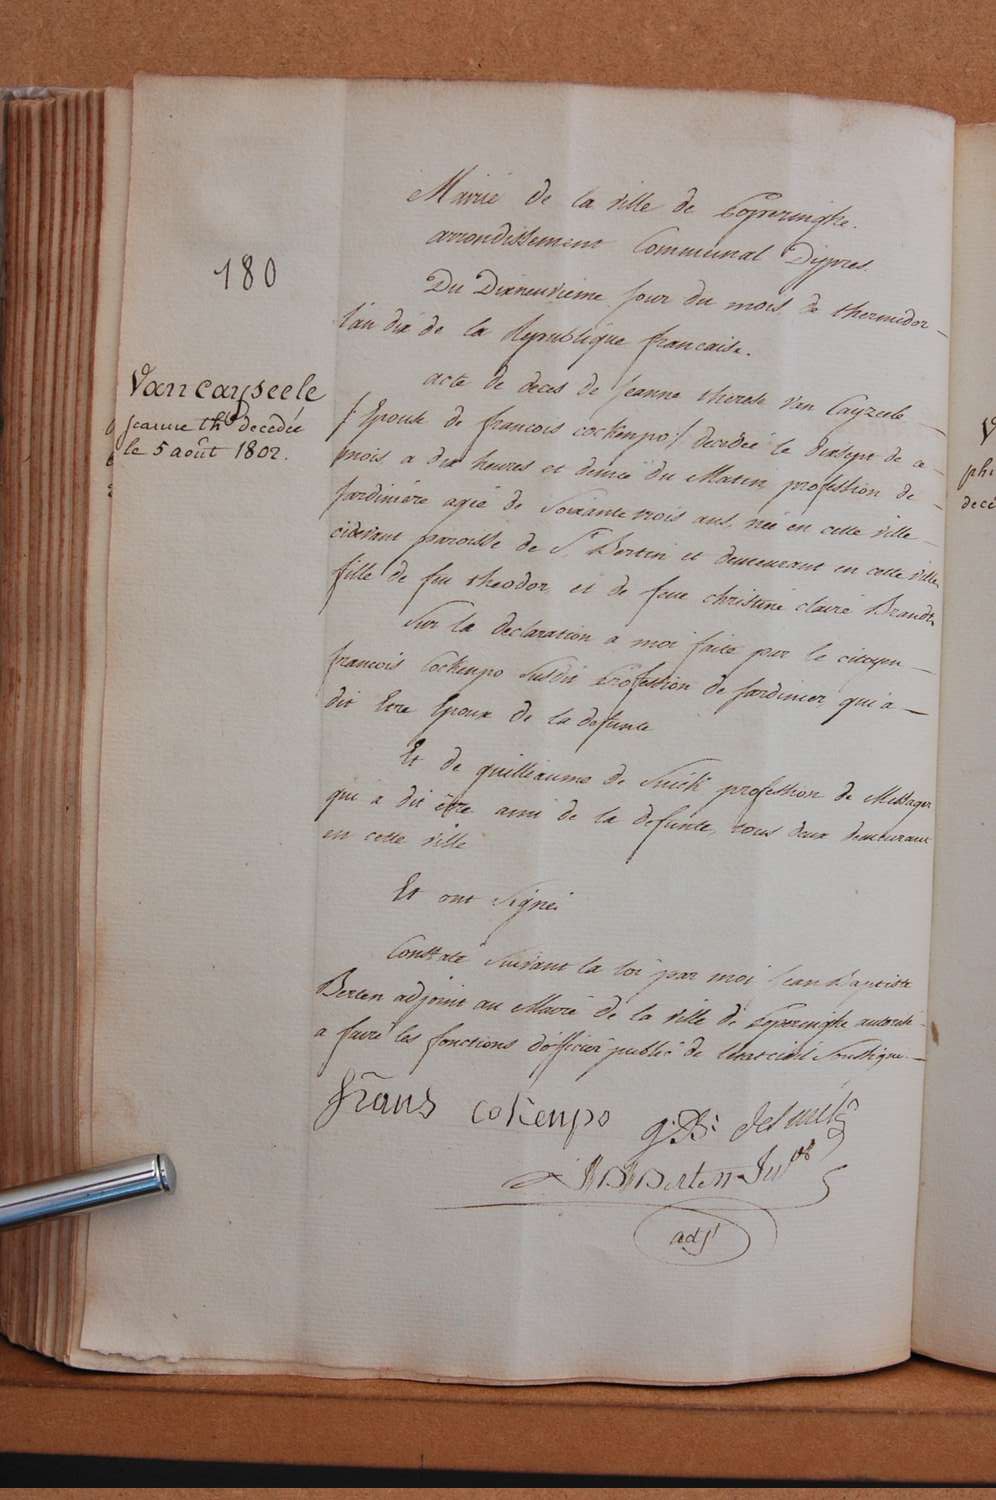 180
Vancayseele
Jeanne th. decedée
le 5 août 1802.
Mairie de la ville de Poperinghe.
arrondissement Communal Dypres.
Du Dixneuvieme jour du mois de thermidor
l'an dix de la Republique francaise.
acte de deces de Jeanne therese Van Cayzeele
/ Epouse de francois cockenpo / decedée le dixsept de ce
mois a dix heures et demie du Matin profession de
Jardiniere agée de Soixante trois ans, née en cette ville
cidevant paroisse de St Bertin et demeurant en cette ville,
fille de feu theodor, et de feue christine claire Brandt,
Sur la declaration a moi faite par le citoyen
francois Cockenpo susdit profession de Jardinier, qui a
dit Etre Epoux de la defunte
Et de guilleaume de Smidt profession de Messager
qui a dit être ami de la defunte, tous deux demeurant
en cette ville
Et ont Signé.
Constaté suivant la loi par moi Jean Baptiste
Berten adjoint au Maire de la ville de Poperinghe autorisé
a faire les fonctions d'officier public de l'etat civil soussigné
frans cokenpo
adjt
ph
decé